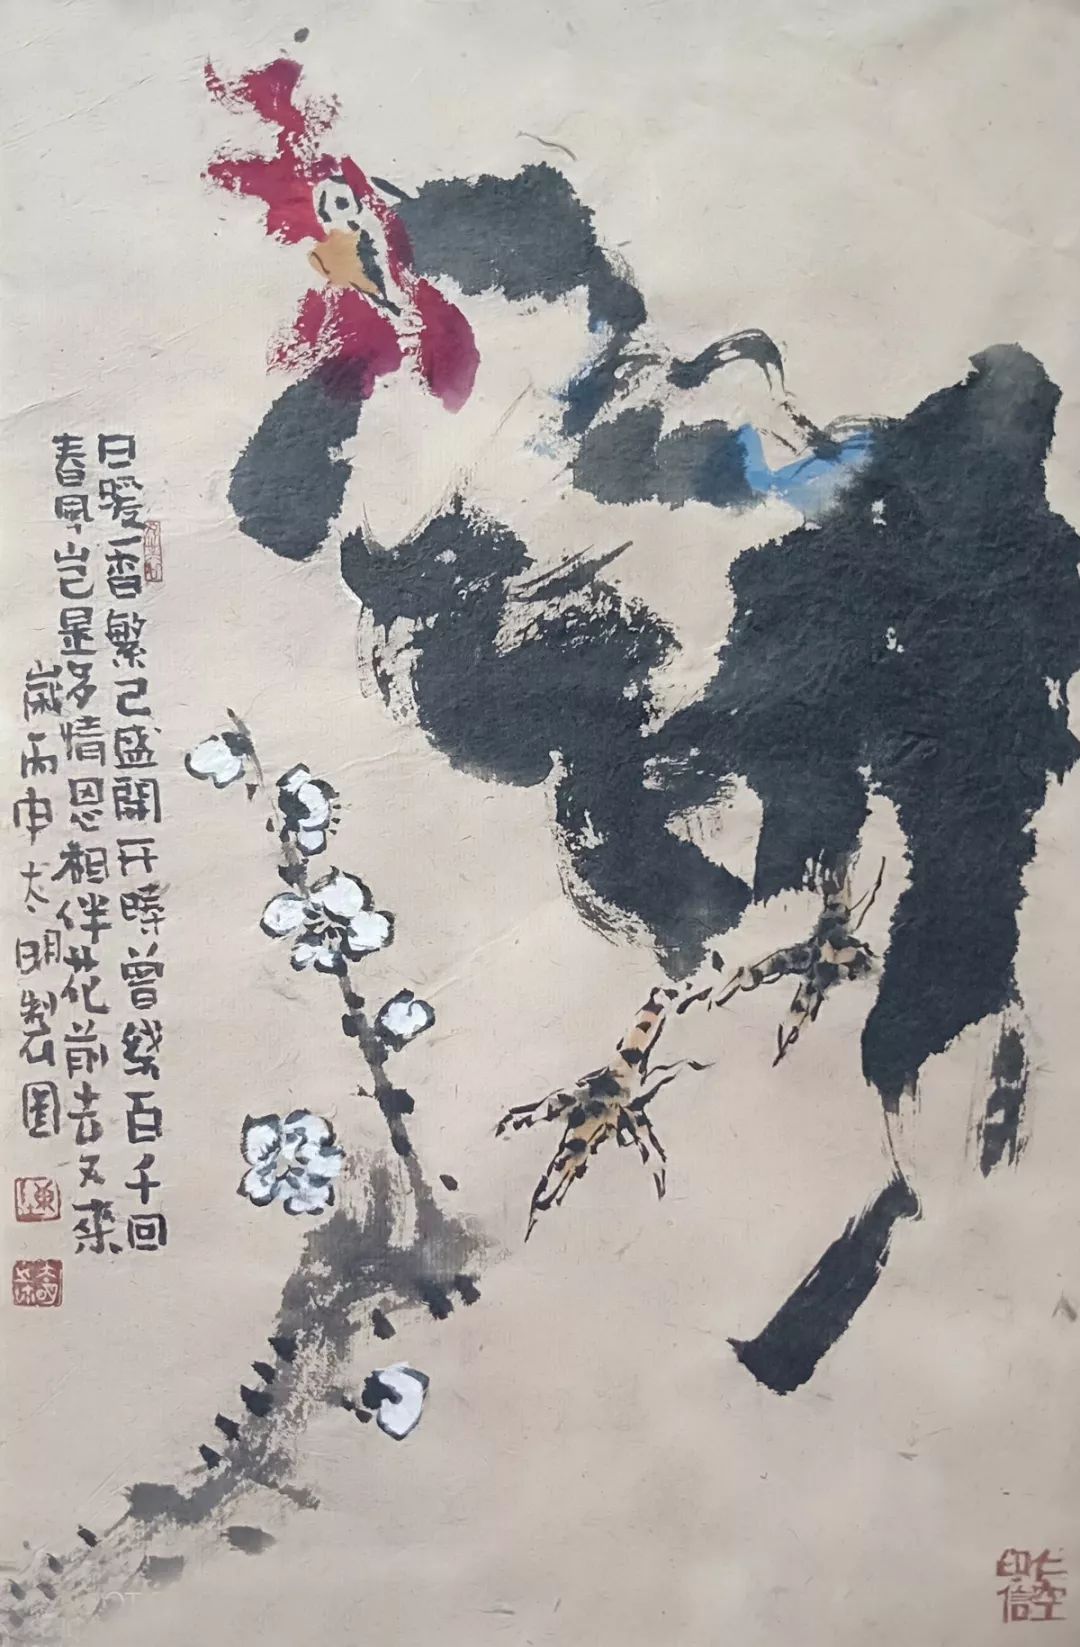 日暖香繁已盛開开時曾繞百千回
春風岂是多情思相伴花前去又來
歲丙申大明製圖
印信